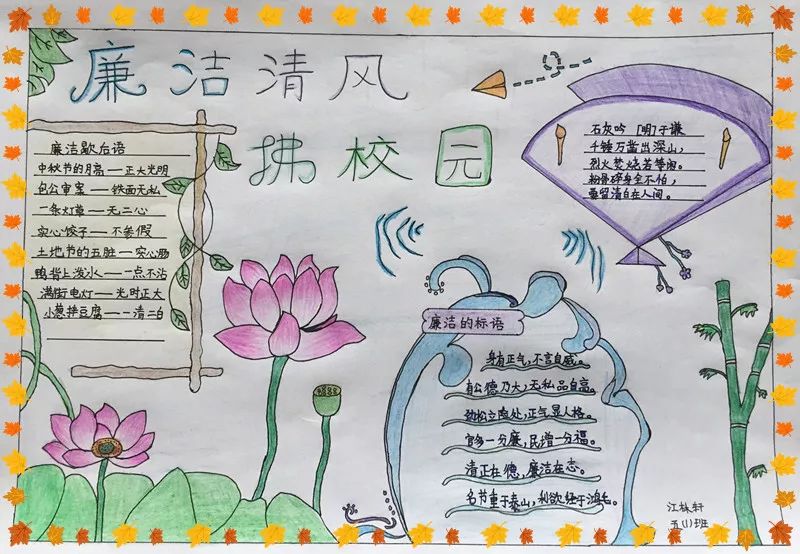 廉洁清风
拂校园
廉洁歇后语
中秋节的月亮——正大光明
包公审案——铁面无私
一条灯草——无二心
实心饺子——不掺假
土地爷的五脏——实心肠
鸭背上泼水——一点不沾
满街电灯——光明正大
小葱拌豆腐——一清二白
石灰吟 [明]于谦
千锤万凿出深山，
烈火焚烧若等闲。
粉骨碎身全不怕，
要留清白在人间。
廉洁的标语
身有正气，不言自威。
有公德乃大，无私品自高。
劲松立险处，正气显人格。
官多一分廉，民增一分福。
清正在德，廉洁在志。
名节重于泰山，利欲轻于鸿毛。
五(1)班